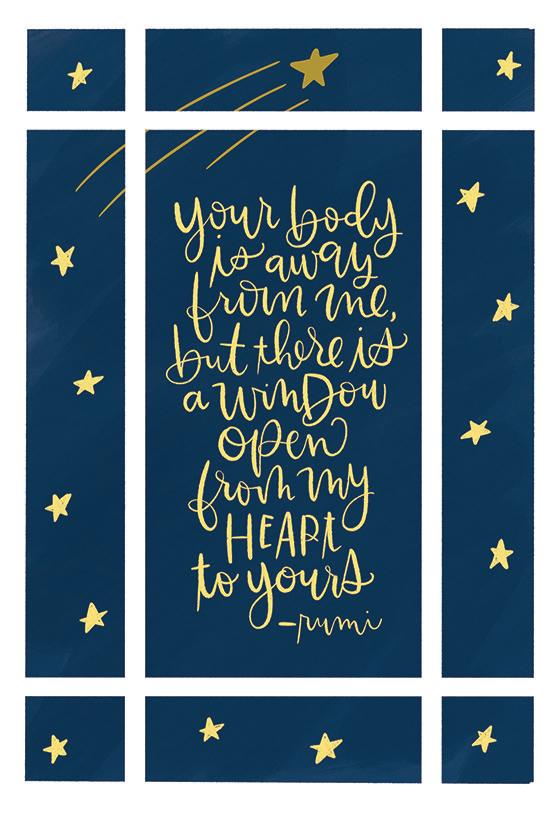 your body
is away
from me,
but there is
a winDow
open
from my
HEART
to yours
-rumi